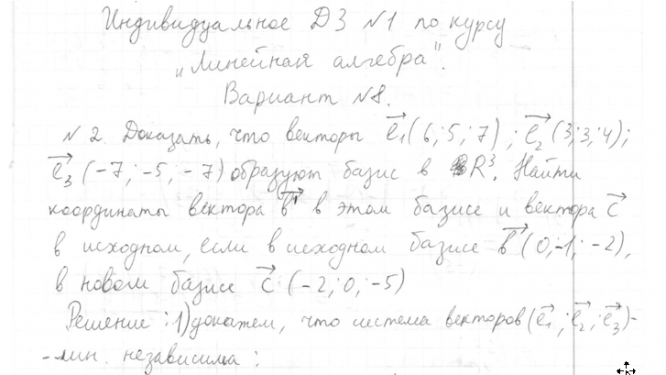 Индивидуальное ДЗ №1 по курсу
„Линейная алгебра".
Вариант №8.
№2. Доказать, что векторы e₁(6;5;7); e₂(3;3;4);
e₃(-7;-5;-7) образуют базис в R³. Найти
координаты вектора в в этом базисе и вектора c
в исходном, если в исходном базисе в(0;-1;-2),
в новом базисе c(-2;0;-5)
Решение: 1) докажем, что система векторов (e₁;e₂;e₃)-
-лин. независима: